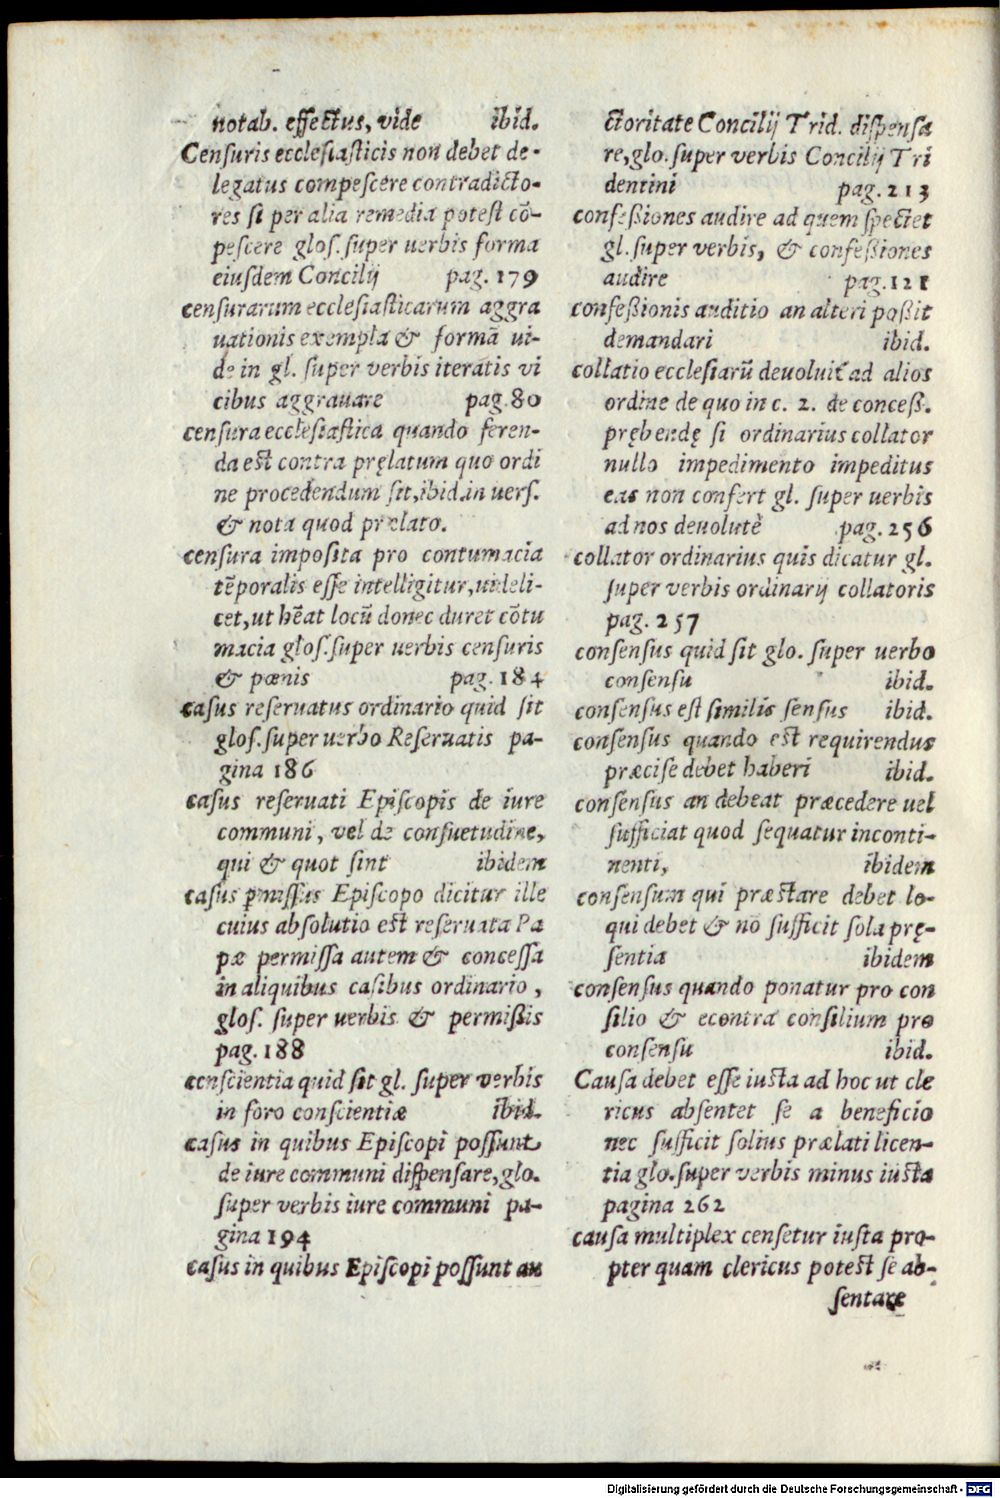 notab. effectus, vide ibid.
Censuris ecclesiasticis non debet de-
legatus compescere contradicto-
res si per alia remedia potest cō-
pescere glos. super uerbis forma
eiusdem Concilij pag. 179
censurarum ecclesiasticarum aggra
uationis exempla & formā ui-
de in gl. super verbis iteratis vi
cibus aggrauare pag. 80
censura ecclesiastica quando feren-
da est contra pręlatum quo ordi
ne procedendum sit, ibid. in uers.
& nota quod prælato.
censura imposita pro contumacia
tēporalis esse intelligitur, uideli-
cet, ut hēat locū donec duret cōtu
macia glos. super uerbis censuris
& pœnis pag. 184
casus reseruatus ordinario quid sit
glos. super uerbo Reseruatis pa-
gina 186
casus reseruati Episcopis de iure
communi, vel de consuetudine,
qui & quot sint ibidem
casus ꝑmissus Episcopo dicitur ille
cuius absolutio est reseruata Pa
pæ permissa autem & concessa
in aliquibus casibus ordinario,
glos. super uerbis & permißis
pag. 188
conscientia quid sit gl. super verbis
in foro conscientiæ ibid.
casus in quibus Episcopi possunt
de iure communi dispensare, glo.
super verbis iure communi pa-
gina 194
casus in quibus Episcopi possunt au
ctoritate Concilij Trid. dispensa
re, glo. super verbis Concilij Tri
dentini pag. 213
confeßiones audire ad quem spectet
gl. super verbis, & confeßiones
audire pag. 121
confeßionis auditio an alteri poßit
demandari ibid.
collatio ecclesiarū deuoluit̃ ad alios
ordine de quo in c. 2. de conceß.
prębendę si ordinarius collator
nullo impedimento impeditus
eas non confert gl. super uerbis
ad nos deuolutē pag. 256
collator ordinarius quis dicatur gl.
super verbis ordinarij collatoris
pag. 257
consensus quid sit glo. super uerbo
consensu ibid.
consensus est similis sensus ibid.
consensus quando est requirendus
præcise debet haberi ibid.
consensus an debeat præcedere uel
sufficiat quod sequatur inconti-
nenti, ibidem
consensum qui præstare debet lo-
qui debet & nō sufficit sola prę-
sentia ibidem
consensus quando ponatur pro con
silio & econtra consilium pro
consensu ibid.
Causa debet esse iusta ad hoc ut cle
ricus absentet se a beneficio
nec sufficit solius prælati licen-
tia glo. super verbis minus iusta
pagina 262
causa multiplex censetur iusta pro-
pter quam clericus potest se ab-
sentare
Digitalisierung gefördert durch die Deutsche Forschungsgemeinschaft - DFG